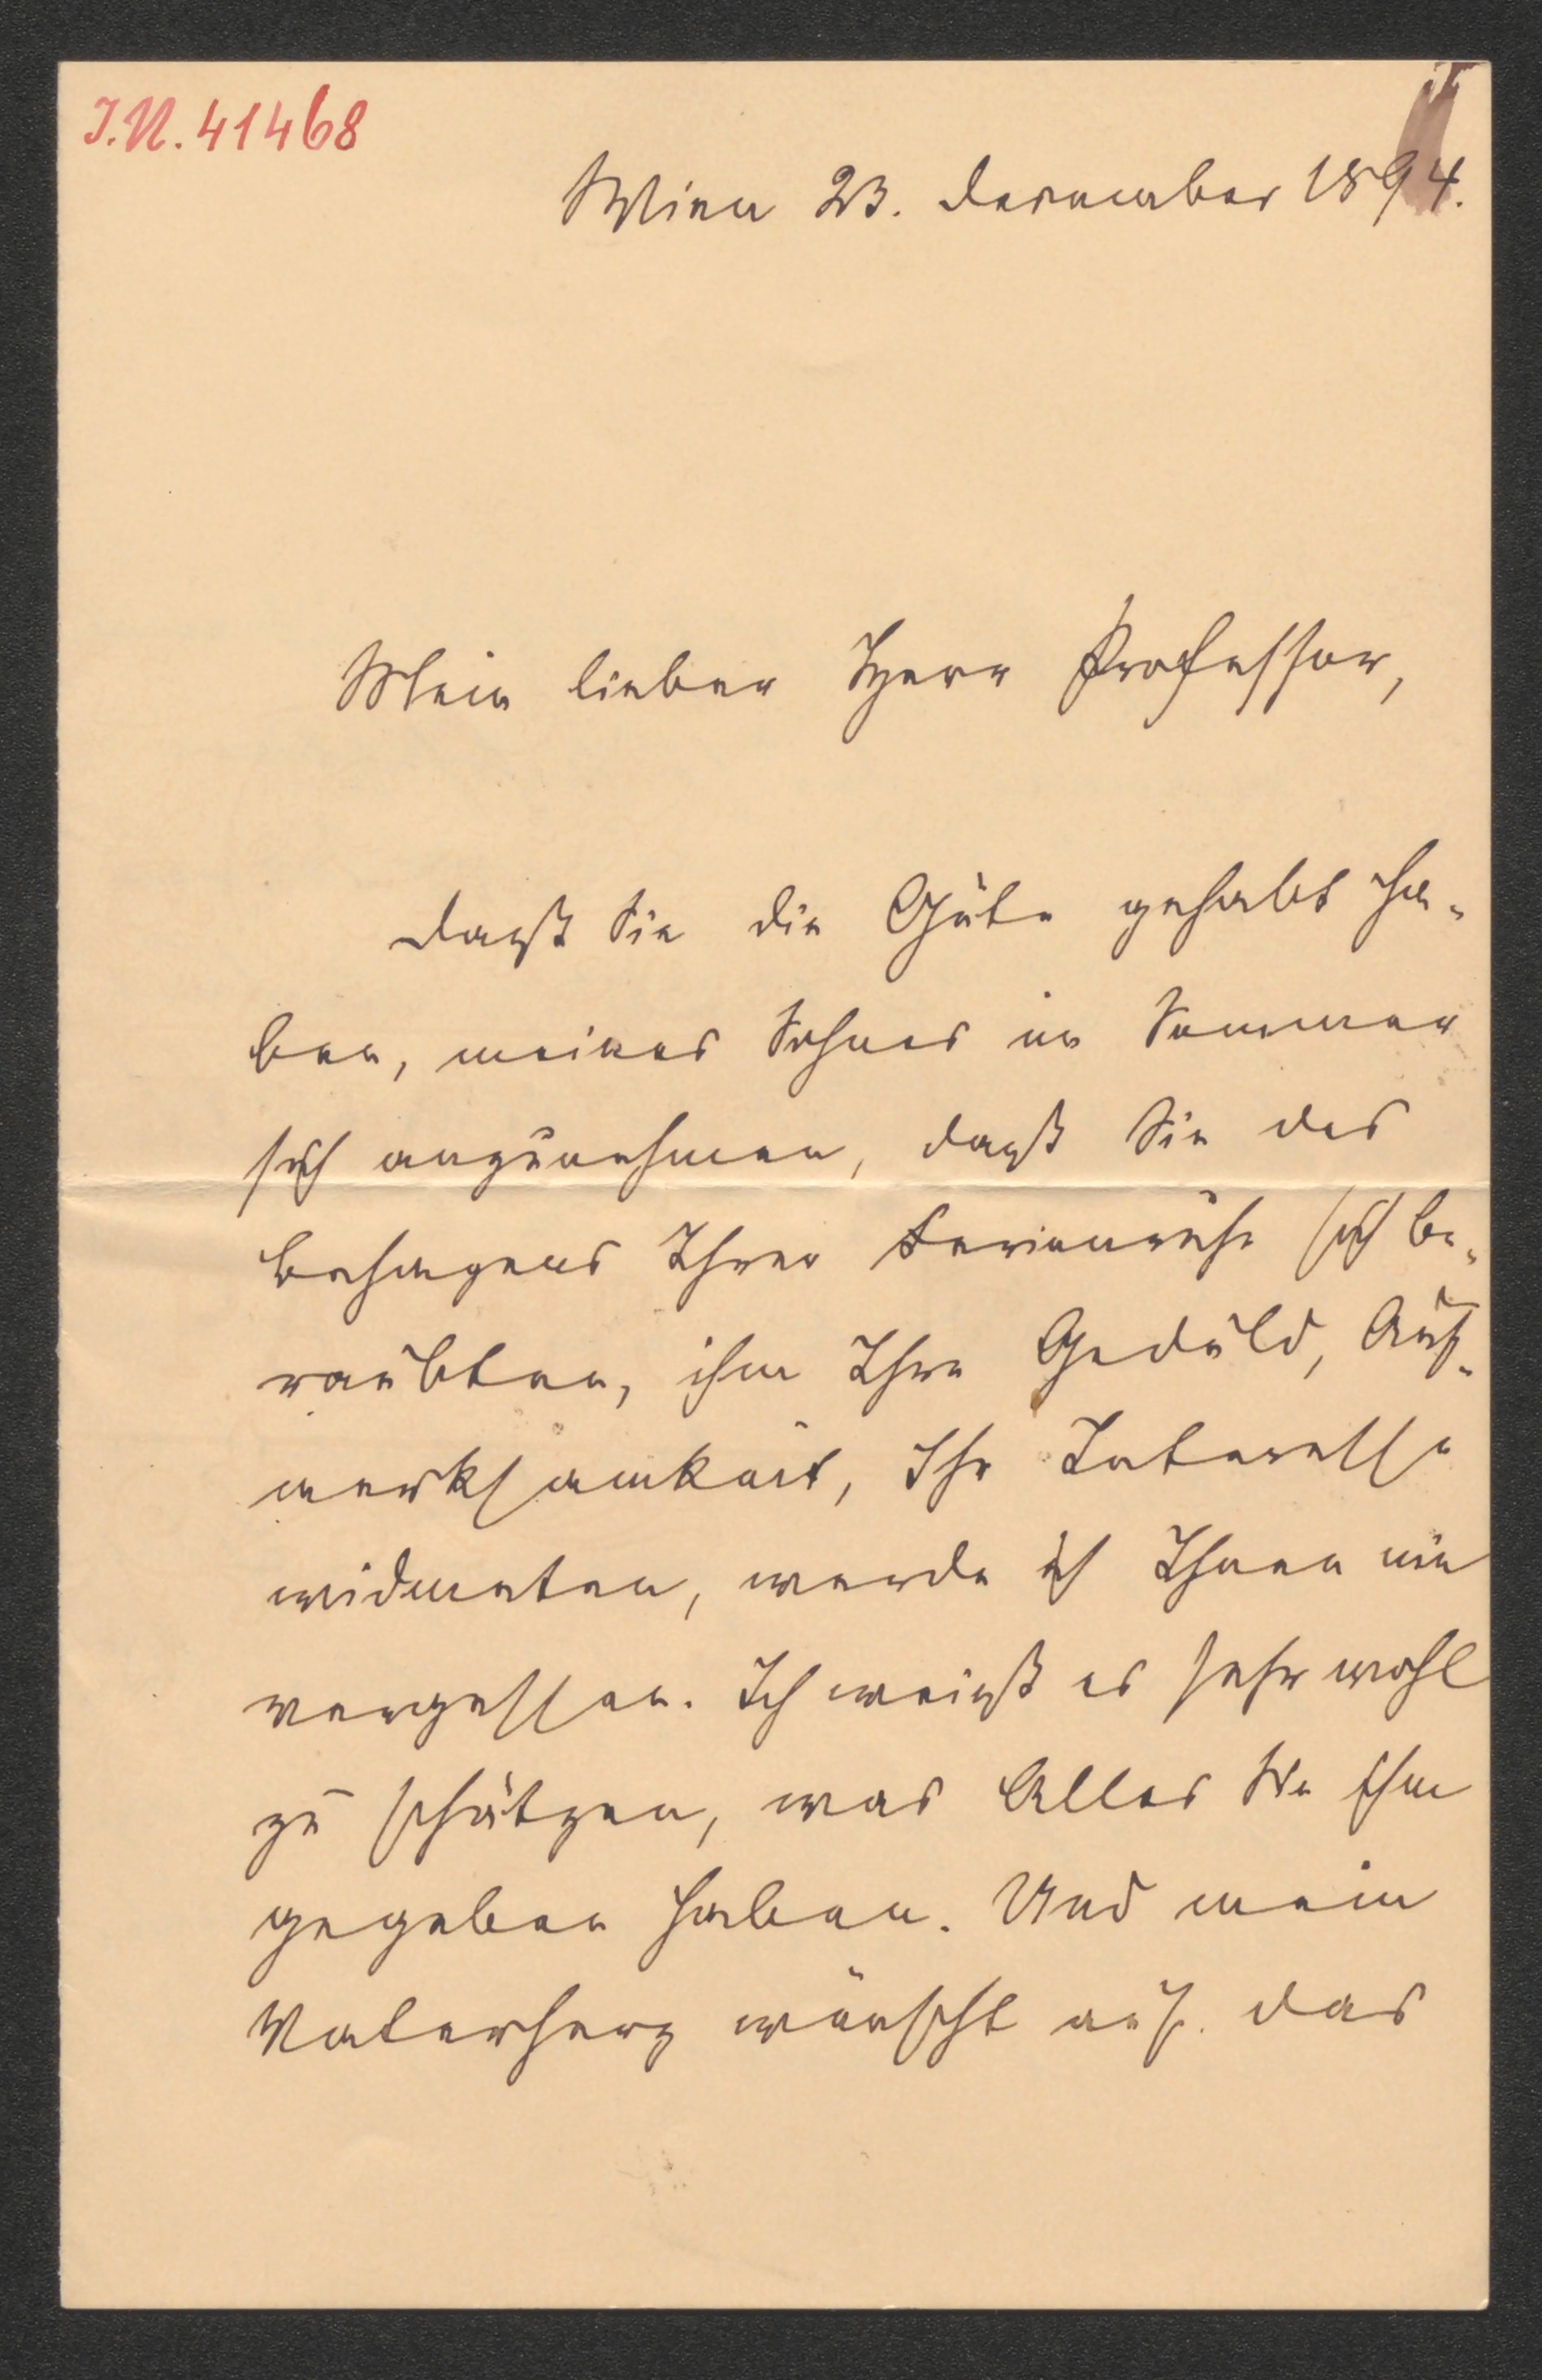 I.N. 41468
Wien 23. December 1894.
Mein lieber Herr Professor,
Daß Sie die Güte gehabt ha-
ben, meines Sohnes im Sommer
sich anzunehmen, daß Sie des
Behagens Ihrer Ferienruhe sich be-
raubten, ihm Ihre Geduld, Auf-
merksamkeit, Ihr Interesse
widmeten, werde ich Ihnen nie
vergessen. Ich weiß es sehr wohl
zu schätzen, was Alles Sie ihm
gegeben haben. Und mein
Vaterherz wünscht auf das